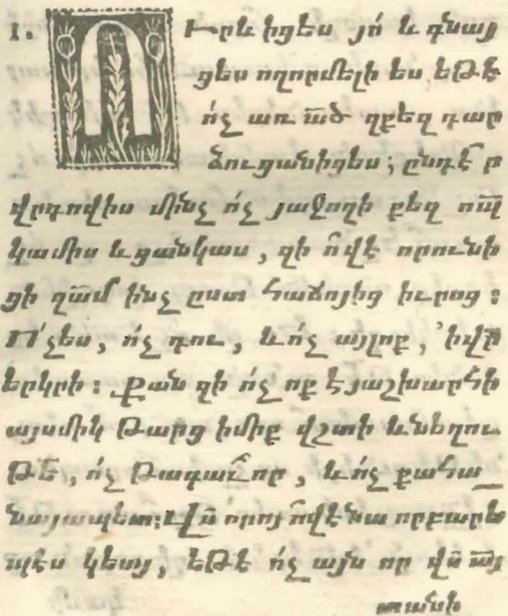 1. ՈՒր և իցես յո՛ և գնայ
ցես ողորմելի ես եթէ
ո՛չ առ ած զքեզ դար
ձուցանիցես; ընդէ՞ր
վրդովիս մինչ ո՛չ յաջողի քեզ որպ
կամիս և ցանկաս, զի ո՞վ է որ ունի
ցի զամ ինչ ըստ հաճոյից իւրոց :
Ո՛չ ես, ո՛չ դու, և ո՛չ այլոք, ՚ի վր
երկրի : Քան զի ո՛չ ոք է յաշխարհի
այսմիկ թարց իմիք վշտի և նեղու
թե, ո՛չ թագաւոր, և ո՛չ քահա
նայապետ: Վն որոյ ո՞վ է նա որ
պէս կեայ, եթէ ո՛չ այն որ վն այ